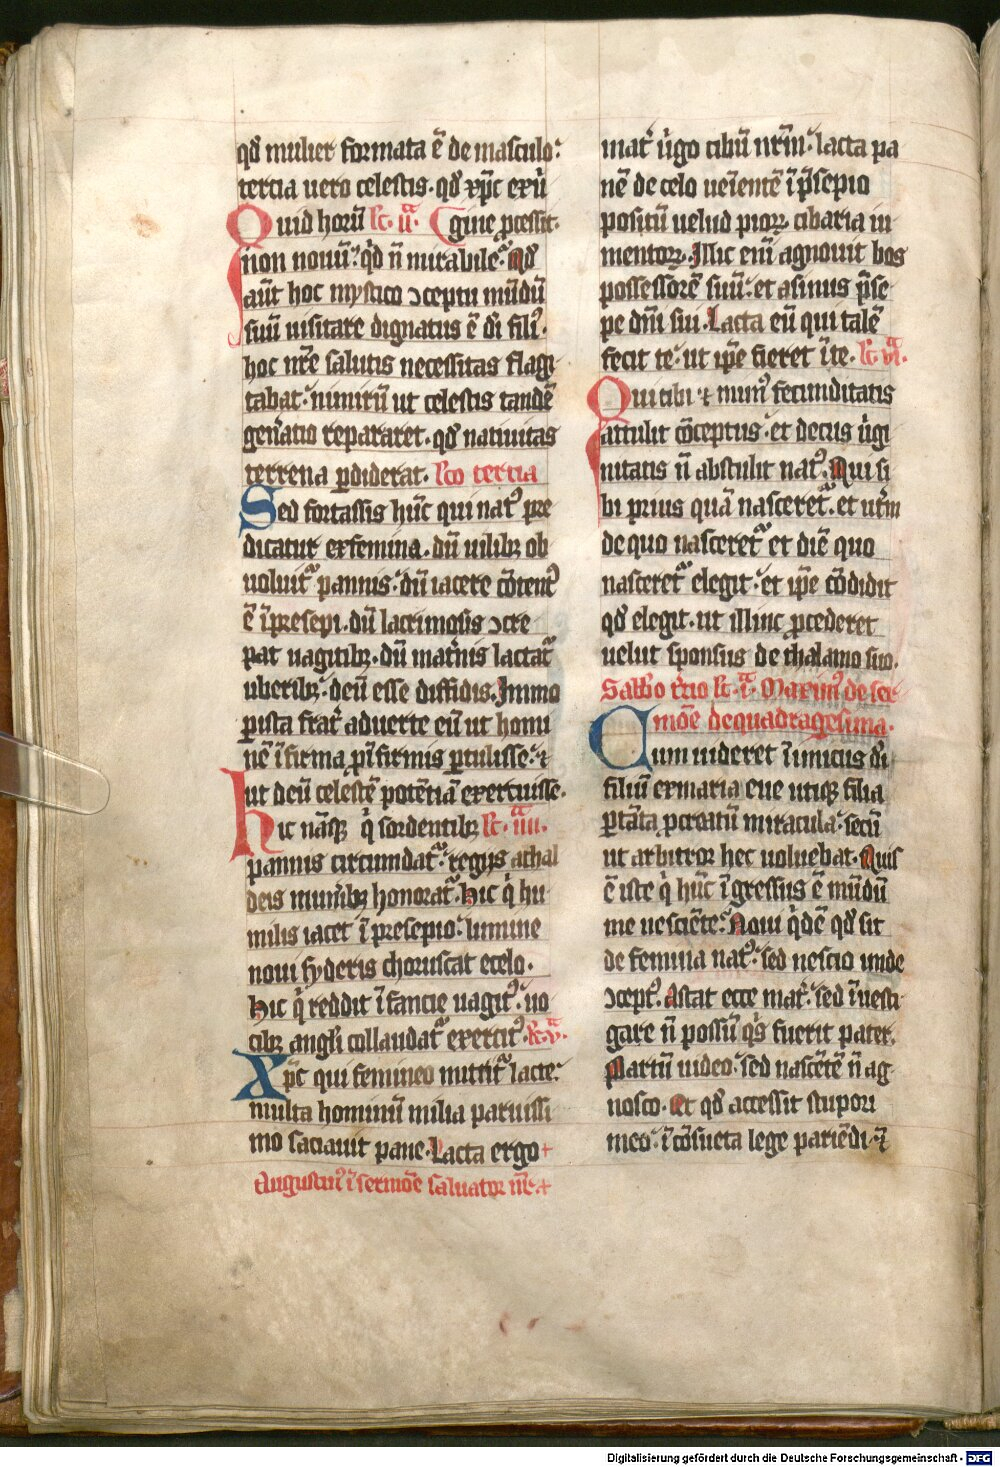 qd̄ mulier formata ē de masculo.
tercia uero celestis. qd̄ xp̄c ex ui
Quid horū lc̄. iia. gine ꝓcessit.
non nouū. qͥd n̄ mirabile. Qd̄
aūt hoc mystico ↄceptu mūdū
suū uisitare dignatus ē di filiꝰ.
hoc nr̄e salutis necessitas flagi
tabat. nimirū ut celestis tandē
gen̄atio repararet. qd̄ natiuitas
terrena ꝑdiderat. lc̄o tercia
Sed fortassis hūc qui natꝰ pre
dicatur ex femina. dū uilibꝫ ob
uoluitᷣ pannis. dū iacere cōtentꝰ
ē ī presepi. dū lacrimosis ↄcre
pat uagitibꝫ. dū mat̄nis lactatᷣ
uberibꝫ. deū esse diffidis. Immo
ꝑ ista frat̄ aduerte eū ut homi
nē īfirma ꝓ īfirmis ꝑtulisse. ⁊
ut deū celestē potētiā exercuisse.
Hic nāqꝫ qͥ sordentibꝫ lc̄. iiiia.
pannis circumdatᷣ. regijs a chal
deis munīb honoratᷣ. Hic qͥ hu
milis iacet ī presepio. lumine
noui syderis choruscat e celo.
Hic qͥ reddit īfancie uagitꝰ. uo
cibꝫ angl̄i collaudatᷣ exercitꝰ. lc̄. va.
Xp̄c qui femineo nutritᷣ lacte.
multa hominū milia paruissi
mo saciauit pane. Lacta ergo +
Augustinꝰ ī sermōe saluator nr̄ +
mat̄ ūgo cibū nr̄m. lacta pa
nē de celo ueīentē ī p̄sepio
positū uelud pioꝝ cibaria iu
mentoꝝ. Illic enī agnouit bos
possessorē suū. et asinus p̄se
pe dn̄i sui. Lacta eū qui talē
fecit te. ut ip̄e fieret ī te. lc̄. via.
Qui tibi ⁊ munꝰ fecunditatis
attulit cōceptus. et decus ūgi
nitatis n̄ abstulit natꝰ. Qui si
bi prius quā nasceretᷣ. et ut̄m
de quo nasceretᷣ et diē quo
nasceretᷣ elegit. et ip̄e cōdidit
qd̄ elegit. ut illinc ꝓcederet
uelut sponsus de thalamo suo.
Sabb̄o t̄cio lc̄. ia. Maximꝰ de ser
mōe de quadragesima.
Cum uideret īimicus di
filiū ex maria eue utiqꝫ filia
ꝑ tāta ꝓcreatū miracula. secū
ut arbitror hec uoluebat. Quis
ē iste qͥ hūc īgressus ē mūdū
me nesciēte. Noui qͥdē qd̄ sit
de femina natꝰ. sed nescio unde
ↄceptꝰ. Astat ecce mat̄. sed īuesti
gare n̄ possū qͥs fuerit pater.
Partū uideo. sed nascētē n̄ ag
nosco. Et qd̄ accessit stupori
meo. ī cōsueta lege pariēdi. ⁊
Digitalisierung gefördert durch die Deutsche Forschungsgemeinschaft - DFG